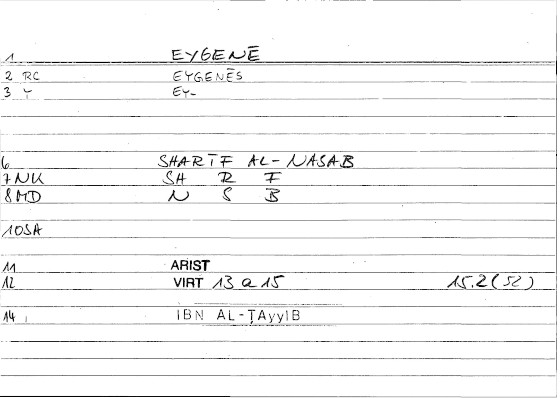 1 EYGENĒ
2 RC EYGENĒS
3 Y EY-
6 SHARĪF AL-NASAB
7 NK SH R F
8 MD N S B
10 SA
11 ARIST
12 VIRT 13 a 15 15.2 (52)
14 IBN AL-ṬAyyIB